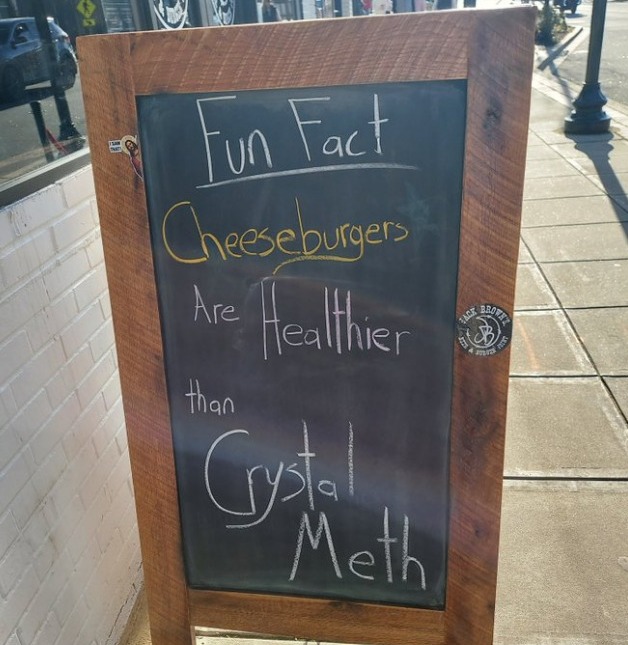 Fun Fact
Cheeseburgers
Are Healthier
than
Crystal
Meth
JACK BROWN'S
JB
BEER & BURGER JOINT